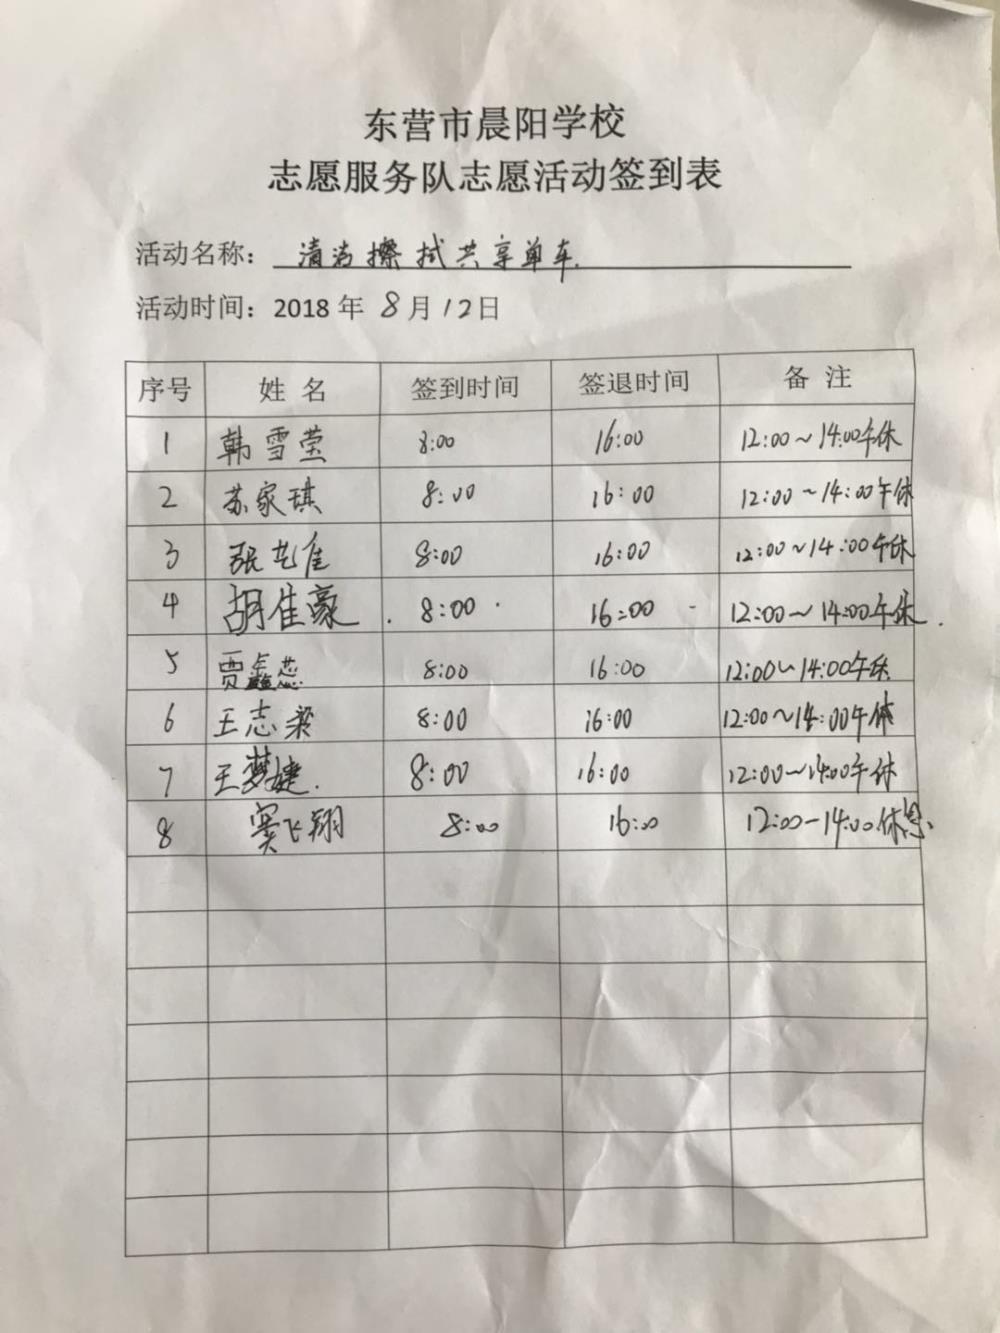 东营市晨阳学校
志愿服务队志愿活动签到表
活动名称： 清洁擦拭共享单车.
活动时间：2018 年 8 月 12 日
序号 姓 名 签到时间 签退时间 备 注
1 韩雪莹 8:00 16:00 12:00~14:00午休
2 苏家琪 8:00 16:00 12:00~14:00午休
3 张艺佳 8:00 16:00 12:00~14:00午休
4 胡佳豪 8:00 16:00 12:00~14:00午休.
5 贾鑫蕊 8:00 16:00 12:00~14:00午休
6 王志梁 8:00 16:00 12:00~14:00午休
7 王梦婕. 8:00 16:00 12:00~14:00午休
8 窦飞翔 8:00 16:00 12:00-14:00休息